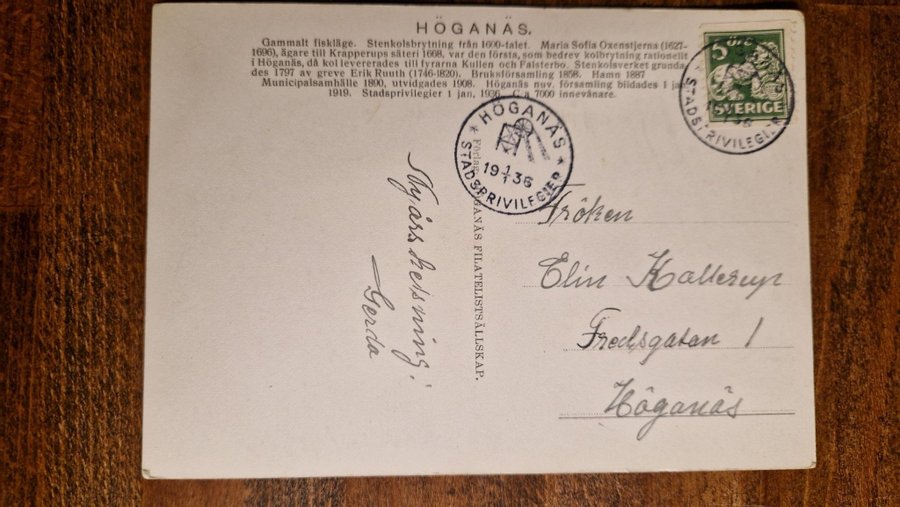 HÖGANÄS.
Gammalt fiskläge. Stenkolsbrytning från 1600-talet. Maria Sofia Oxenstjerna (1627-
1696), ägare till Krapperups säteri 1668, var den första, som bedrev kolbrytning rationellt
i Höganäs, då kol levererades till fyrarna Kullen och Falsterbo. Stenkolsverket grunda-
des 1797 av greve Erik Ruuth (1746-1820). Bruksförsamling 1858. Hamn 1887
Municipalsamhälle 1890, utvidgades 1908. Höganäs nuv. församling bildades 1 jan.
1919. Stadsprivilegier 1 jan. 1936. C:a 7000 innevånare.
5 ÖRE
SVERIGE
STADSPRIVILEGIER
HÖGANÄS
19 1/1 36
STADSPRIVILEGIER
Förlag: HÖGANÄS FILATELISTSÄLLSKAP.
Nyårshelsning!
Gerda
Fröken
Elin
Fredsgatan 1
Höganäs